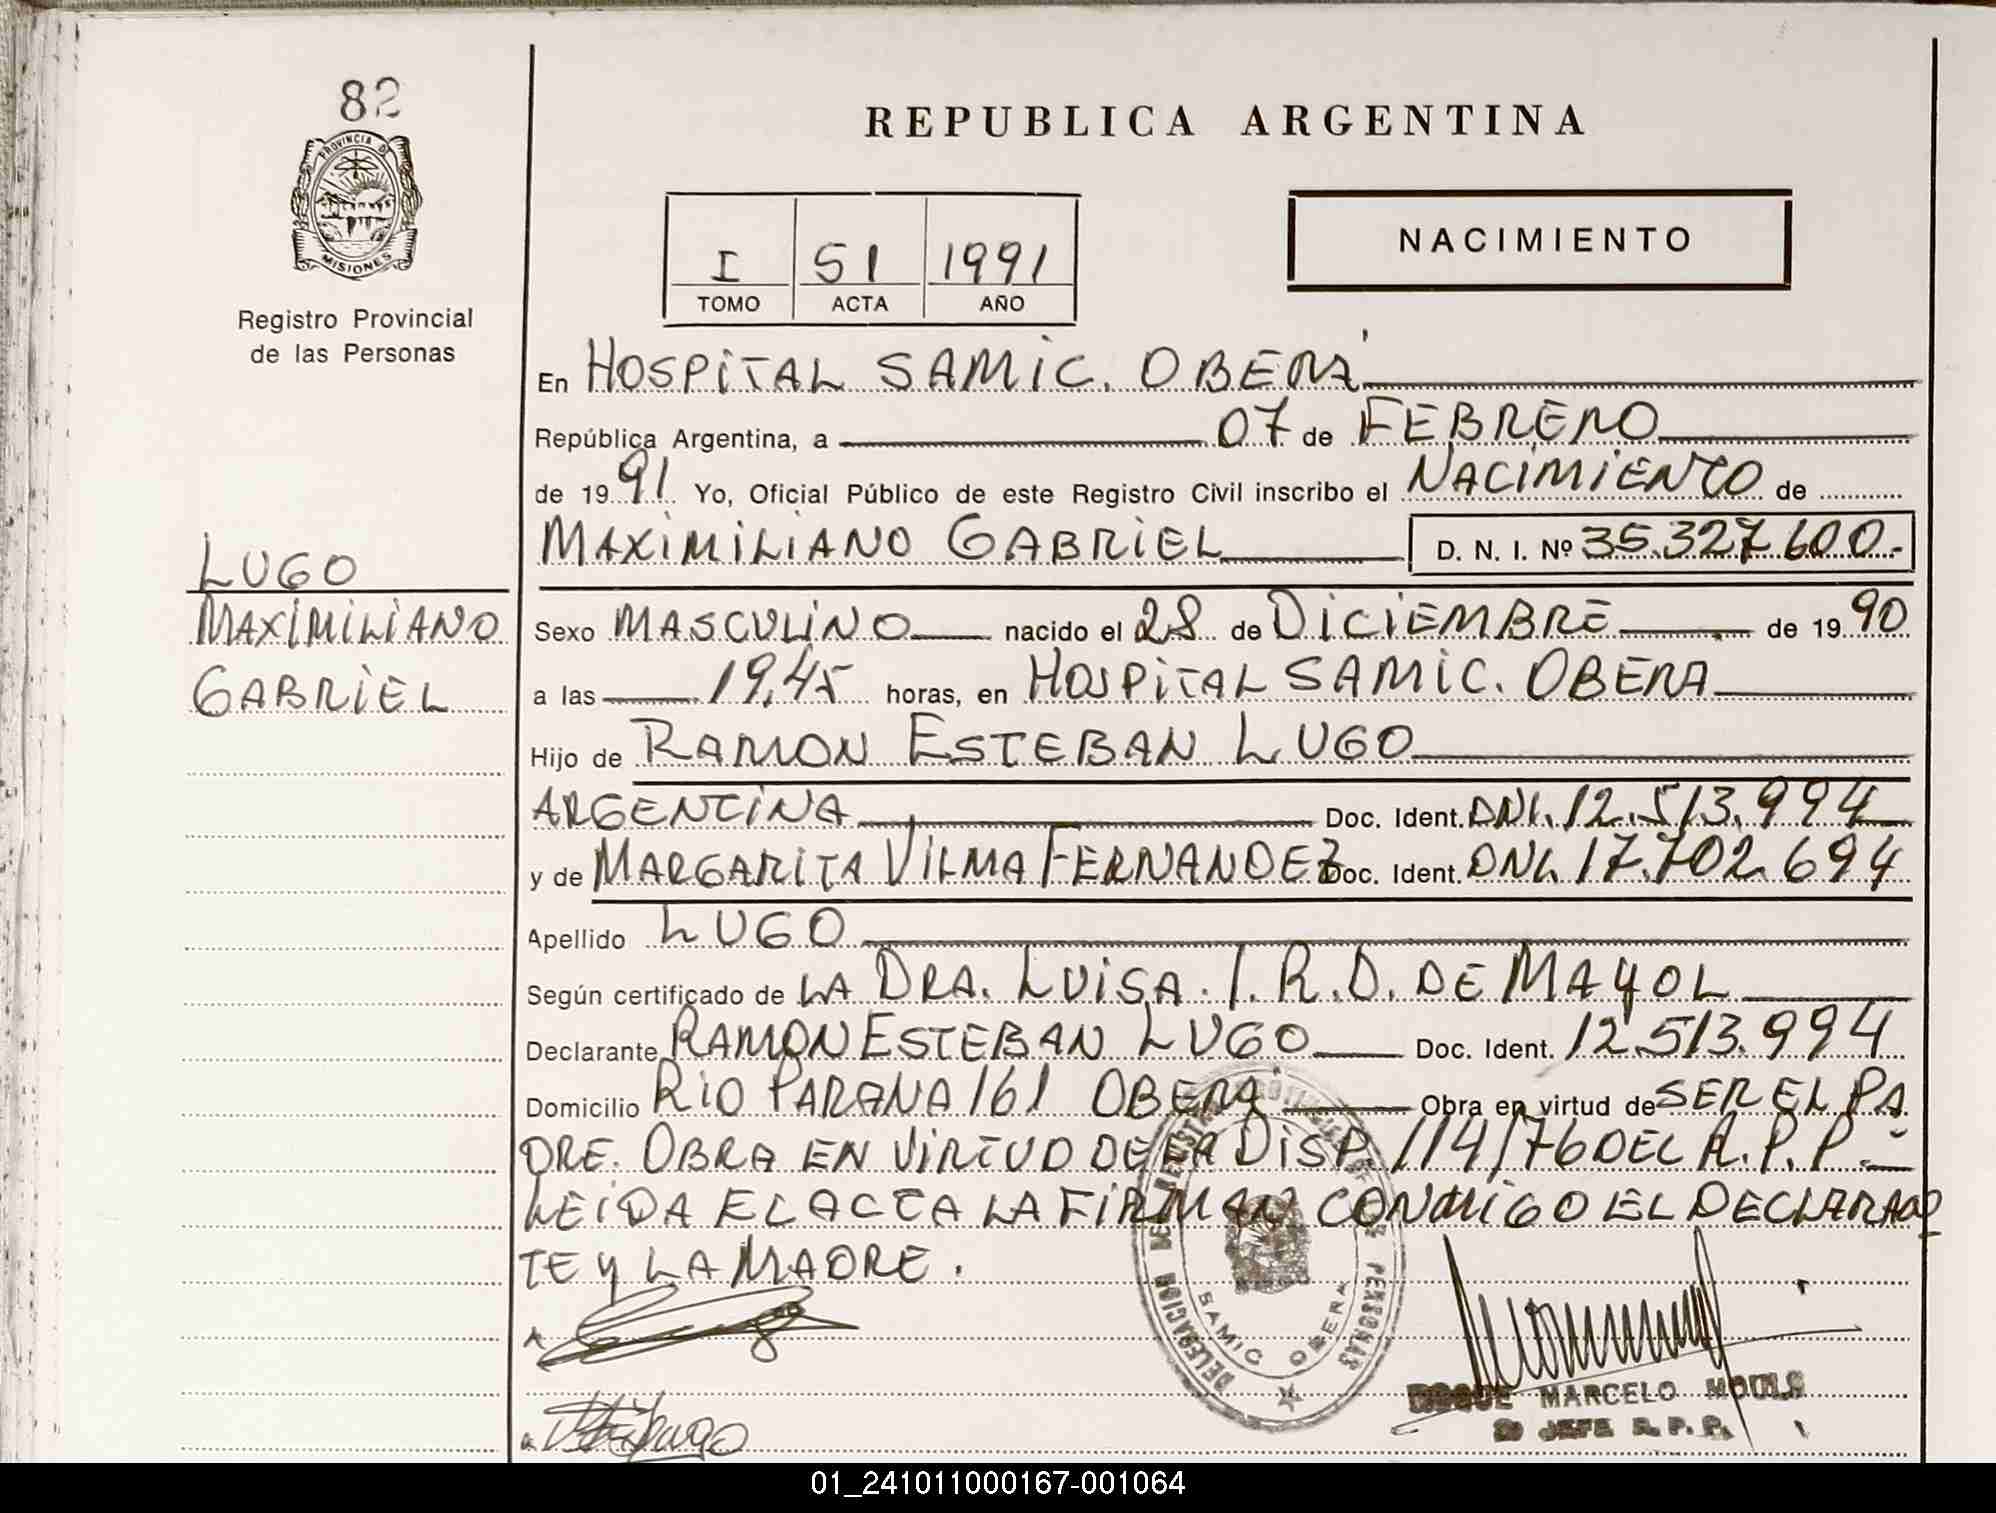 82
PROVINCIA DE
MISIONES
Registro Provincial
de las Personas
LUGO
MAXIMILIANO
GABRIEL
REPUBLICA ARGENTINA
I 51 1991
TOMO ACTA AÑO
NACIMIENTO
En HOSPITAL SAMIC. OBERÁ
República Argentina, a 07 de FEBRERO
de 1991 Yo, Oficial Público de este Registro Civil inscribo el NACIMIENTO de
MAXIMILIANO GABRIEL D. N. I. Nº 35.327.600.-
Sexo MASCULINO nacido el 28 de DICIEMBRE de 1990
a las 19,45 horas, en HOSPITAL SAMIC. OBERA
Hijo de RAMON ESTEBAN LUGO
ARGENTINA Doc. Ident. DNI. 12.513.994
y de MARGARITA VILMA FERNANDEZ Doc. Ident. DNI. 17.702.694
Apellido LUGO
Según certificado de LA DRA. LUISA. I. R. D. DE MAYOL
Declarante RAMON ESTEBAN LUGO Doc. Ident. 12.513.994
Domicilio RIO PARANA 161 OBERA Obra en virtud de SER EL PA
DRE. OBRA EN VIRTUD DE LA DISP. 114/76 DEL R.P.P.-
LEIDA EL ACTA LA FIRMAN CONMIGO EL DECLARAN
TE Y LA MADRE.
DELEGACION DEL PERSONAS
SAMIC OBERA
MARCELO
JEFE R. P. P.
01_241011000167-001064